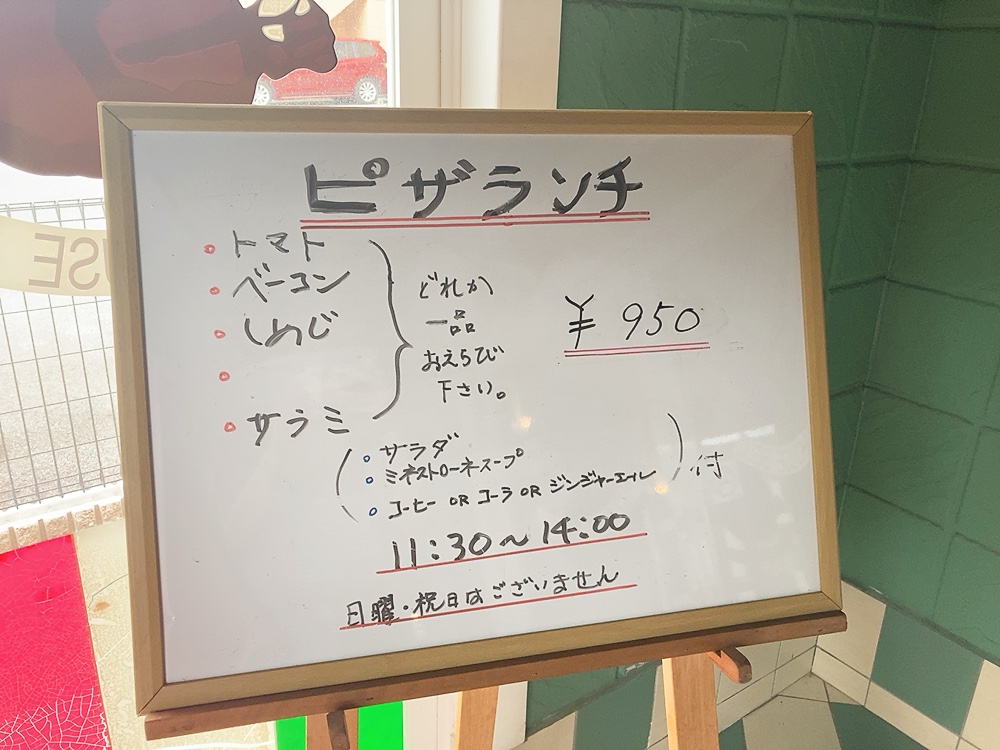 ピザランチ
トマト
ベーコン
しめじ
サラミ
どれか
一品
おえらび
下さい。
¥950
サラダ
ミネストローネスープ
コーヒー OR コーラ OR ジンジャーエール
付
11:30～14:00
日曜・祝日はございません
USE